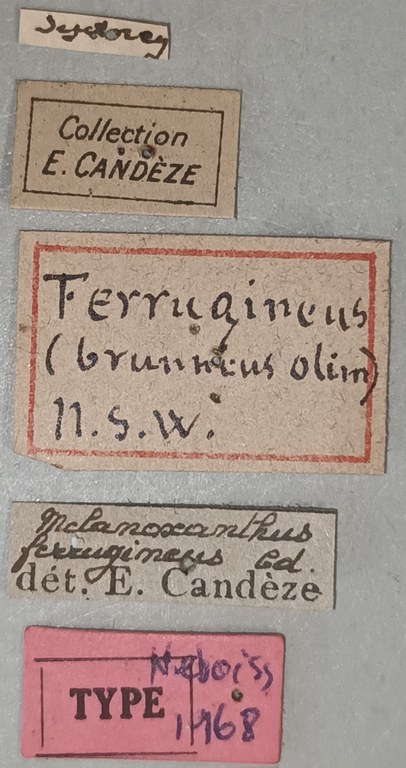 Collection
E. CANDÈZE
Ferrugineus
(brunneus olim)
N.S.W.
Melanoxanthus
ferrugineus Cd.
dét. E. Candèze
Neboiss
TYPE
1968